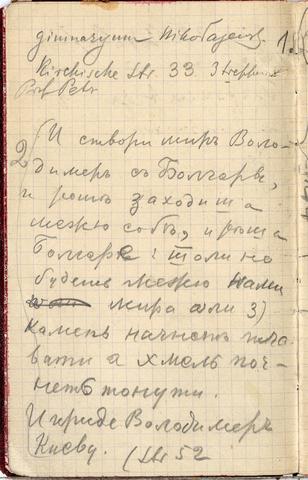 gimnazyum Mikołajew. 1.
Kirchische Str 33 3 treppen
Prof Petr
2 (И створи миръ Воло-
димеръ съ Болгары,
и ротѣ заходиша
межю собѣ, и рѣша
Болгаре: толи не
будеть межю нами
мира оли 3)
камень начнеть пла-
вати а хмель поч-
неть тонути.
И приде Володимеръ
Киеву. (Str 52